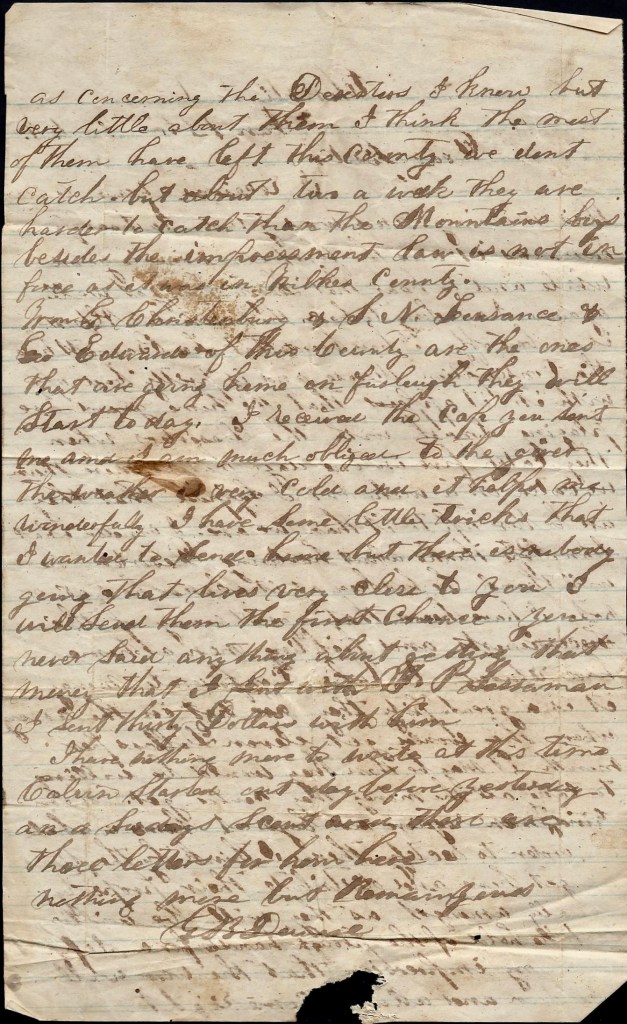 as concerning the Deserters I know but
very little about them I think the most
of them have left this county. we dont
catch but about two a week they are
harder to catch than the Mountains boys
besides the impressment law is not in
force as it was in Wilkes County.
Christenbury & S. N. &
Edwards of this County are the ones
that are going home on furlough they will
start to day. I received the Cape you sent
me and I am much obliged to the giver
the weather is very cold and it helps me
wonderfully I have some little tricks that
I wanted to send home but there is nobody
going that lives very close to you I
will send them the first Chance you
never said anything about getting that
money that I sent with P
I sent thirty Dollars with him
I have nothing more to write at this time
Calvin started out day before yesterday
on a days Scout and there are
three letters for him here
nothing more but Remain yours